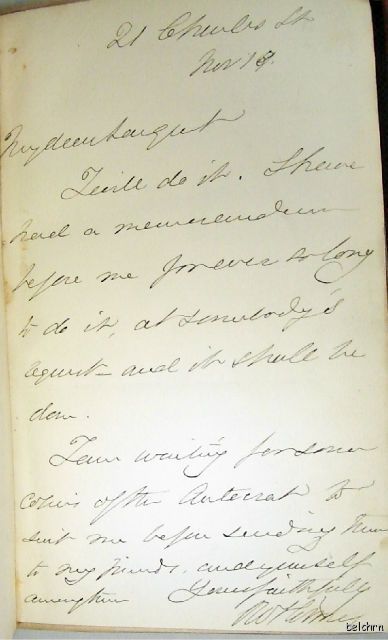 21 Charles St
Nov 18.
My dear
I will do it. I have
had a memorandum
before me for ever so long
to do it, at somebody's
request – and it shall be
done.
I am waiting for some
copies of the Autocrat to
suit me before sending them
to my friends, and yourself
among them
Yours faithfully
OW Holmes
belchrn